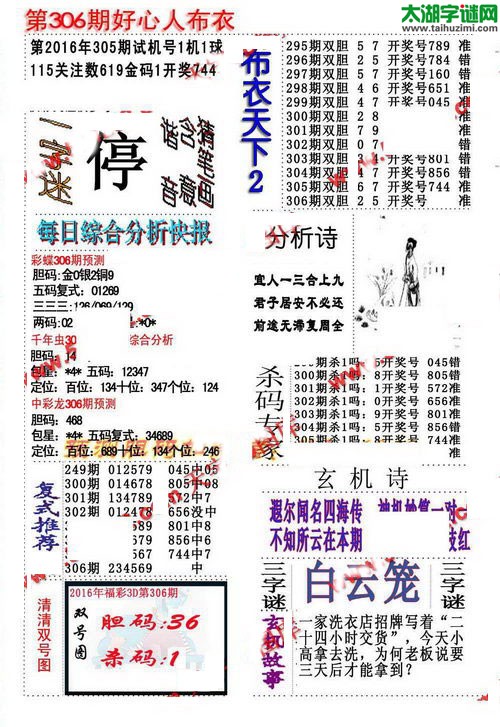 第306期好心人布衣
太湖字谜网
www.taihuzimi.com
第2016年305期试机号1机1球
115关注数619金码1开奖744
布衣天下2
295期双胆 5 7 开奖号789 准
296期双胆 2 5 开奖号784 错
297期双胆 5 7 开奖号160 错
298期双胆 4 6 开奖号651 准
299期双胆 4 7 开奖号045 准
300期双胆 2 8 准
301期双胆 7 9 准
302期双胆 0 7 准
303期双胆 3 开奖号801 错
304期双胆 4 7 开奖号856 错
305期双胆 6 7 开奖号744 准
306期双胆 2 5 开奖号 准
一字迷
停
猪含猪笔画
音意音
每日综合分析快报
彩蝶306期预测
胆码:金0银2铜9
五码复式:01269
三三三:126/069/129
两码:02
千年虫30 综合分析
胆码:14
包星:*4* 五码:12347
定位:百位:134十位:347个位:124
中彩龙306期预测
胆码:468
包星:*4* 五码复式:34689
定位:百位:689十位:134个位:246
分析诗
宜人一三合上九
君子居安不必还
前途无滞复周全
杀码专家
300期杀1吗:8开奖号 045错
301期杀1吗:0开奖号 572准
303期杀1吗:9开奖号 801准
304期杀1吗:6开奖号 856错
744准
复式推荐
249期 012579 045中05
300期 014678 805中08
301期 134789 572中7
302期 012478 656没中
589 801中8
579 856中5
567 744中7
306期 234569 中
玄机诗
遐尔闻名四海传
不知所云在本期
清清双号图
2016年福彩3D第306期
双号图
胆码:36
杀码:1
三字谜
白云笼
三字谜
玄机故事
一家洗衣店招牌写着“二
十四小时交货”,今天小
高拿去洗,为何老板说要
三天后才能拿到?